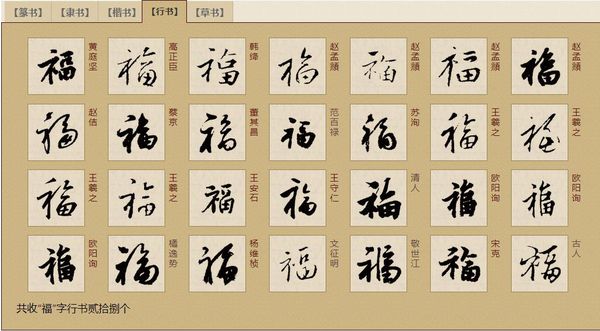 【篆书】 【隶书】 【楷书】 【行书】 【草书】
福 黄庭坚 福 高正臣 福 韩绛 福 赵孟頫 福 赵孟頫 福 赵孟頫 福 赵孟頫
福 赵佶 福 蔡京 福 董其昌 福 范百禄 福 苏洵 福 王羲之 福 王羲之
福 王羲之 福 王羲之 福 王安石 福 王守仁 福 清人 福 欧阳询 福 欧阳询
福 欧阳询 福 橘逸势 福 杨维桢 福 文征明 福 敬世江 福 宋克 福 古人
共收“福”字行书贰拾捌个